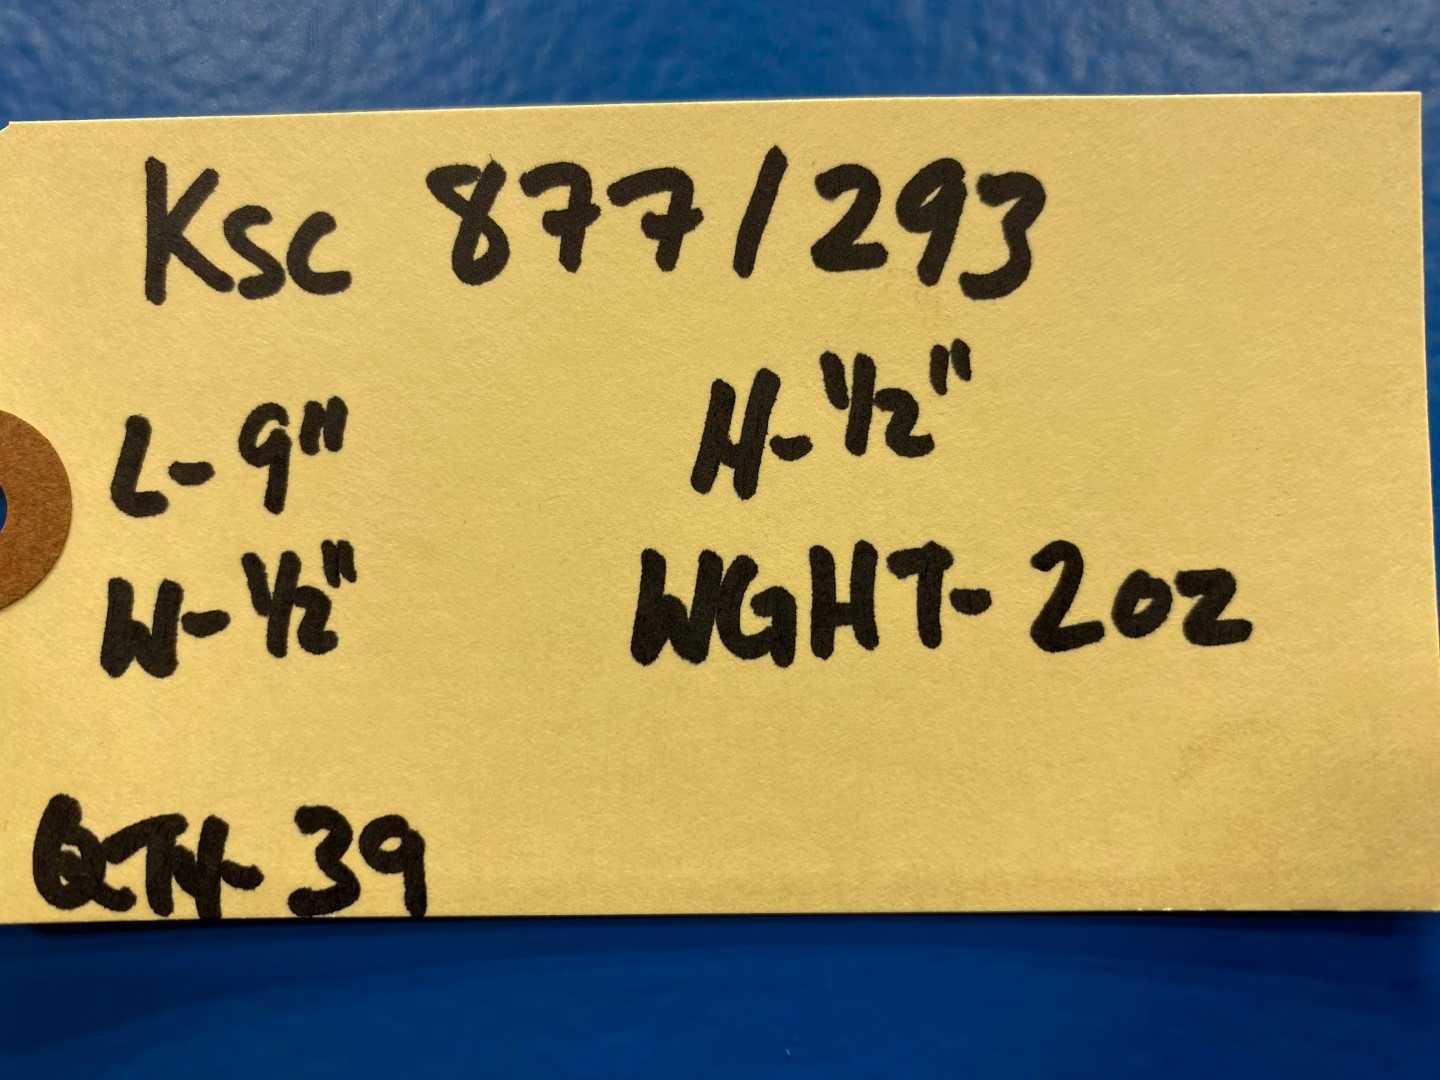 KSC 877/293
L-9" H-1/2"
W-1/2" WGHT-2oz
QTY-39